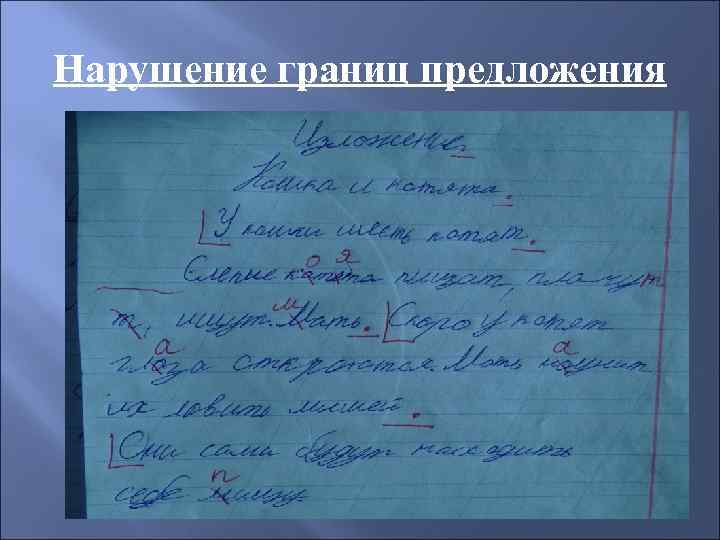 Нарушение границ предложения
Изложение.
Кошка и котята.
У кошки шесть котят.
Слепые котята пищат, плачут
т, ищут. Мать. Скоро у котят
глаза откроются. Мать научит
их ловить мышей.
Они сами будут находить
себе пищу